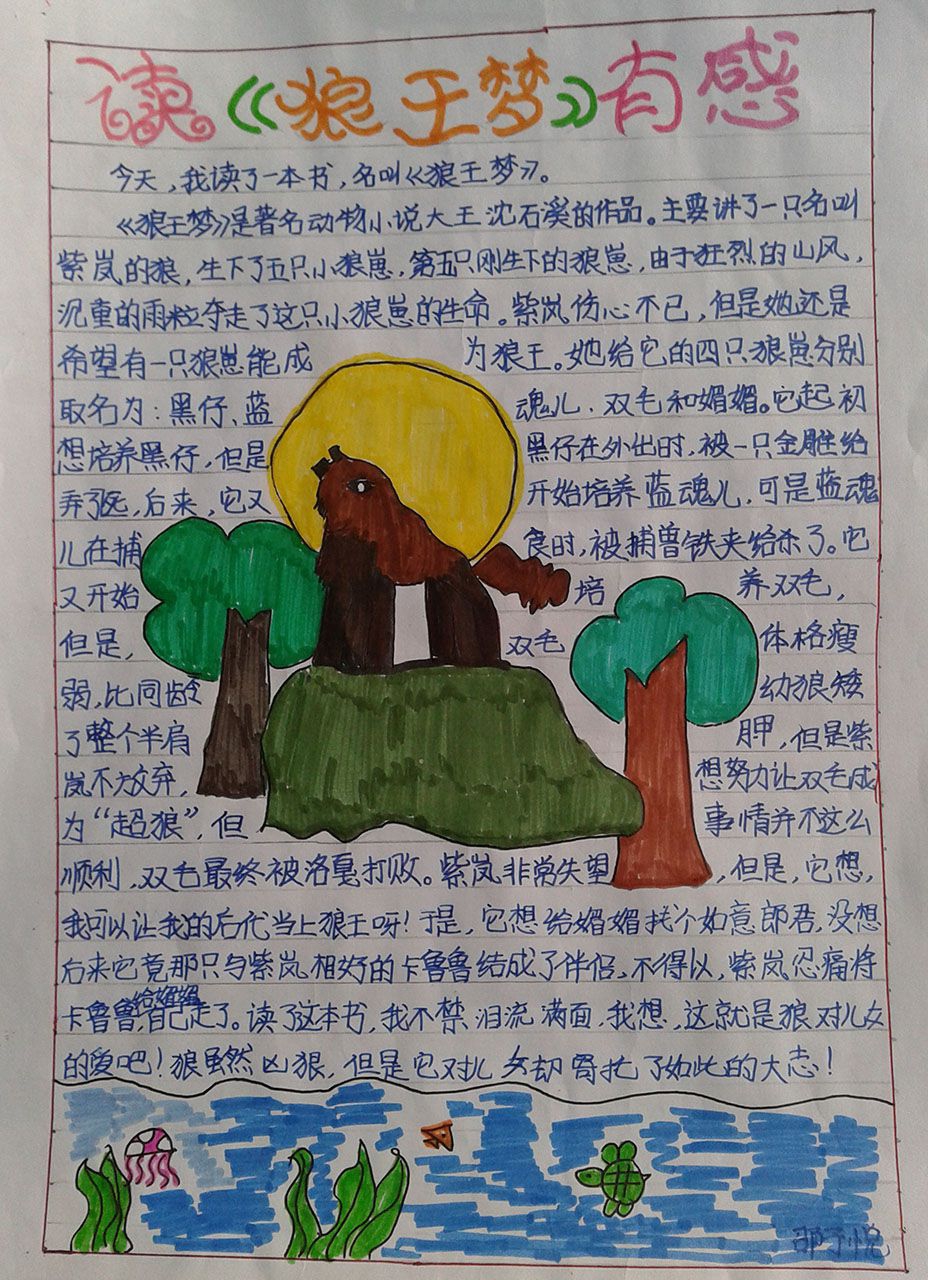 读《狼王梦》有感
今天，我读了一本书，名叫《狼王梦》。
《狼王梦》是著名动物小说大王沈石溪的作品。主要讲了一只名叫
紫岚的狼，生下了五只小狼崽，第五只刚生下的狼崽，由于狂烈的山风，
沉重的雨粒夺走了这只小狼崽的生命。紫岚伤心不已，但是她还是
希望有一只狼崽能成为狼王。她给它的四只狼崽分别
取名为：黑仔、蓝魂儿、双毛和媚媚。它起初
想培养黑仔，但是黑仔在外出时，被一只金雕给
弄死，后来，它又开始培养蓝魂儿，可是蓝魂
儿在捕食时，被捕兽铁夹给杀了。它
又开始培养双毛，
但是，双毛体格瘦
弱，比同龄幼狼矮
了整个半肩胛，但是紫
岚不放弃，想努力让双毛成
为“超狼”，但事情并不这么
顺利，双毛最终被洛戛打败。紫岚非常失望，但是，它想，
我可以让我的后代当上狼王呀！于是，它想给媚媚找个如意郎君，没想
后来它竟那只与紫岚相好的卡鲁鲁结成了伴侣，不得以，紫岚忍痛将
卡鲁鲁给媚媚，自己走了。读了这本书，我不禁泪流满面，我想，这就是狼对儿女
的爱吧！狼虽然凶狠，但是它对儿女却寄托了如此的大志！